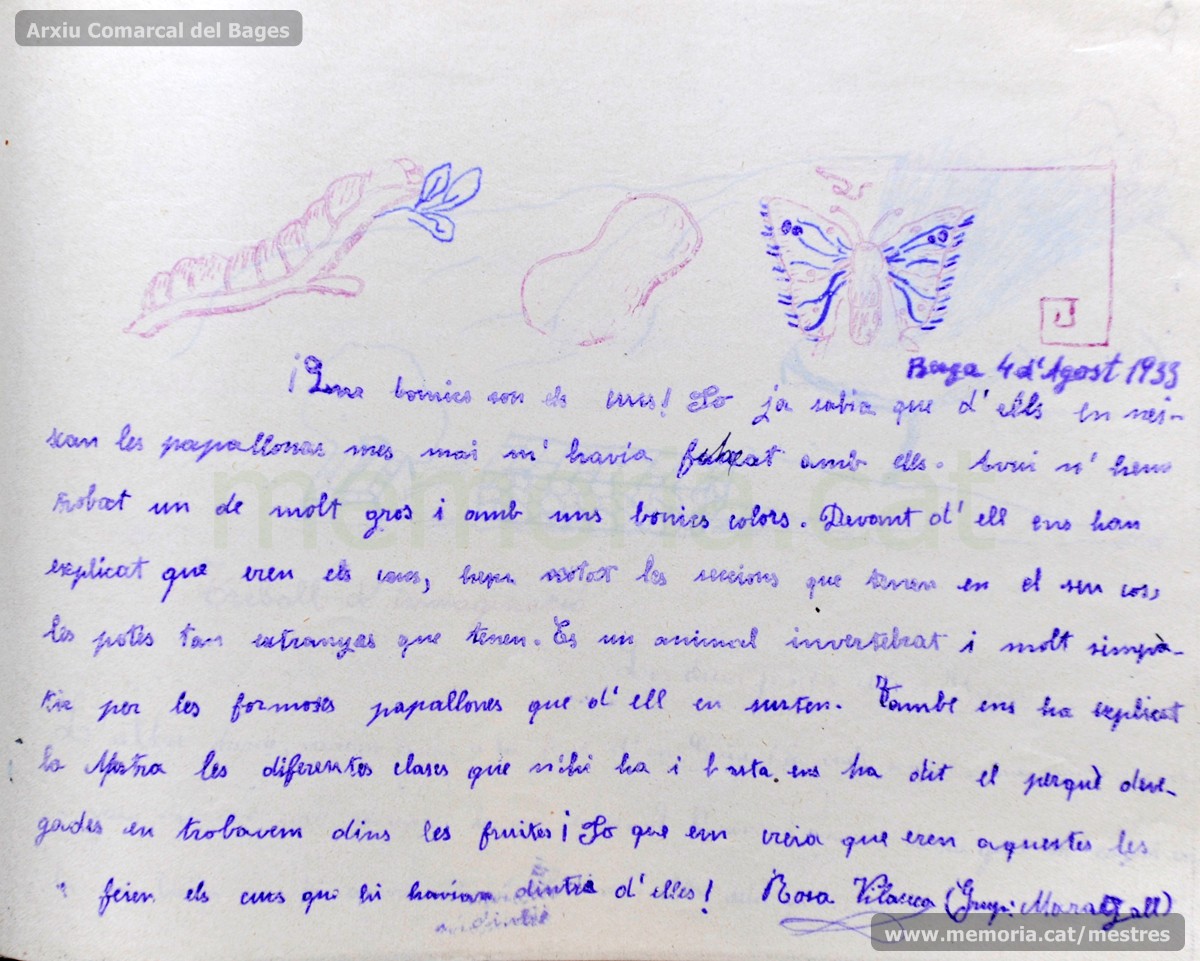 Arxiu Comarcal del Bages
Berga 4 d'Agost 1933
¡Que bonics son els cucs! Jo ja sabia que d'ells en nei-
xan les papallonas mes mai m' havia fixat amb ells. Avui n' hem
trobat un de molt gros i amb uns bonics colors. Devant d' ell ens han
explicat que eren els cucs, hem notat les seccions que tenen en el seu cos,
les potes tan estranyes que tenen. Es un animal invertebrat i molt simpà-
tic per les formoses papallones que d' ell en surten. També ens ha explicat
la Mestra les diferentes clases que n'hi ha i hasta ens ha dit el perquè deve-
gades en trobavem dins les fruites ¡Jo que em creia que eren aquestes les
feien els cucs que hi havian dintre d' elles! Rosa Vilaseca (Grup: Maragall)
memoria.cat
www.memoria.cat/mestres